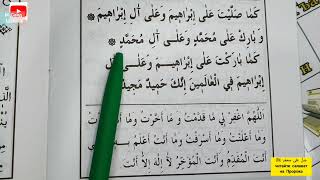 كَمَا صَلَّيْتَ عَلَى إِبْرَاهِيمَ وَعَلَى آلِ إِبْرَاهِيمَ *
وَ بَارِكْ عَلَى مُحَمَّدٍ وَعَلَـى آلِ مُحَمَّدٍ *
كَمَا بَارَكْتَ عَلَى إِبْرَاهِيـمَ وَعَلَـى آلِ
إِبْرَاهِيمَ فِي الْعَالَمِينَ إِنَّكَ حَمِيدٌ مَجِيدٌ
اَللّٰهُمَّ اغْفِرْ لِي مَا قَدَّمْتُ وَ مَا أَخَّرْتُ وَمَا أَسْرَرْتُ
وَ مَا أَعْلَنْتُ وَمَا أَسْرَفْتُ وَمَا أَنْتَ أَعْلَمُ
أَنْتَ الْمُقَدِّمُ وَ أَنْتَ الْمُؤَخِّرُ لَا إِلٰهَ إِلَّا أَنْتَ
صل على محمد ﷺ
читайте салават
на Пророка